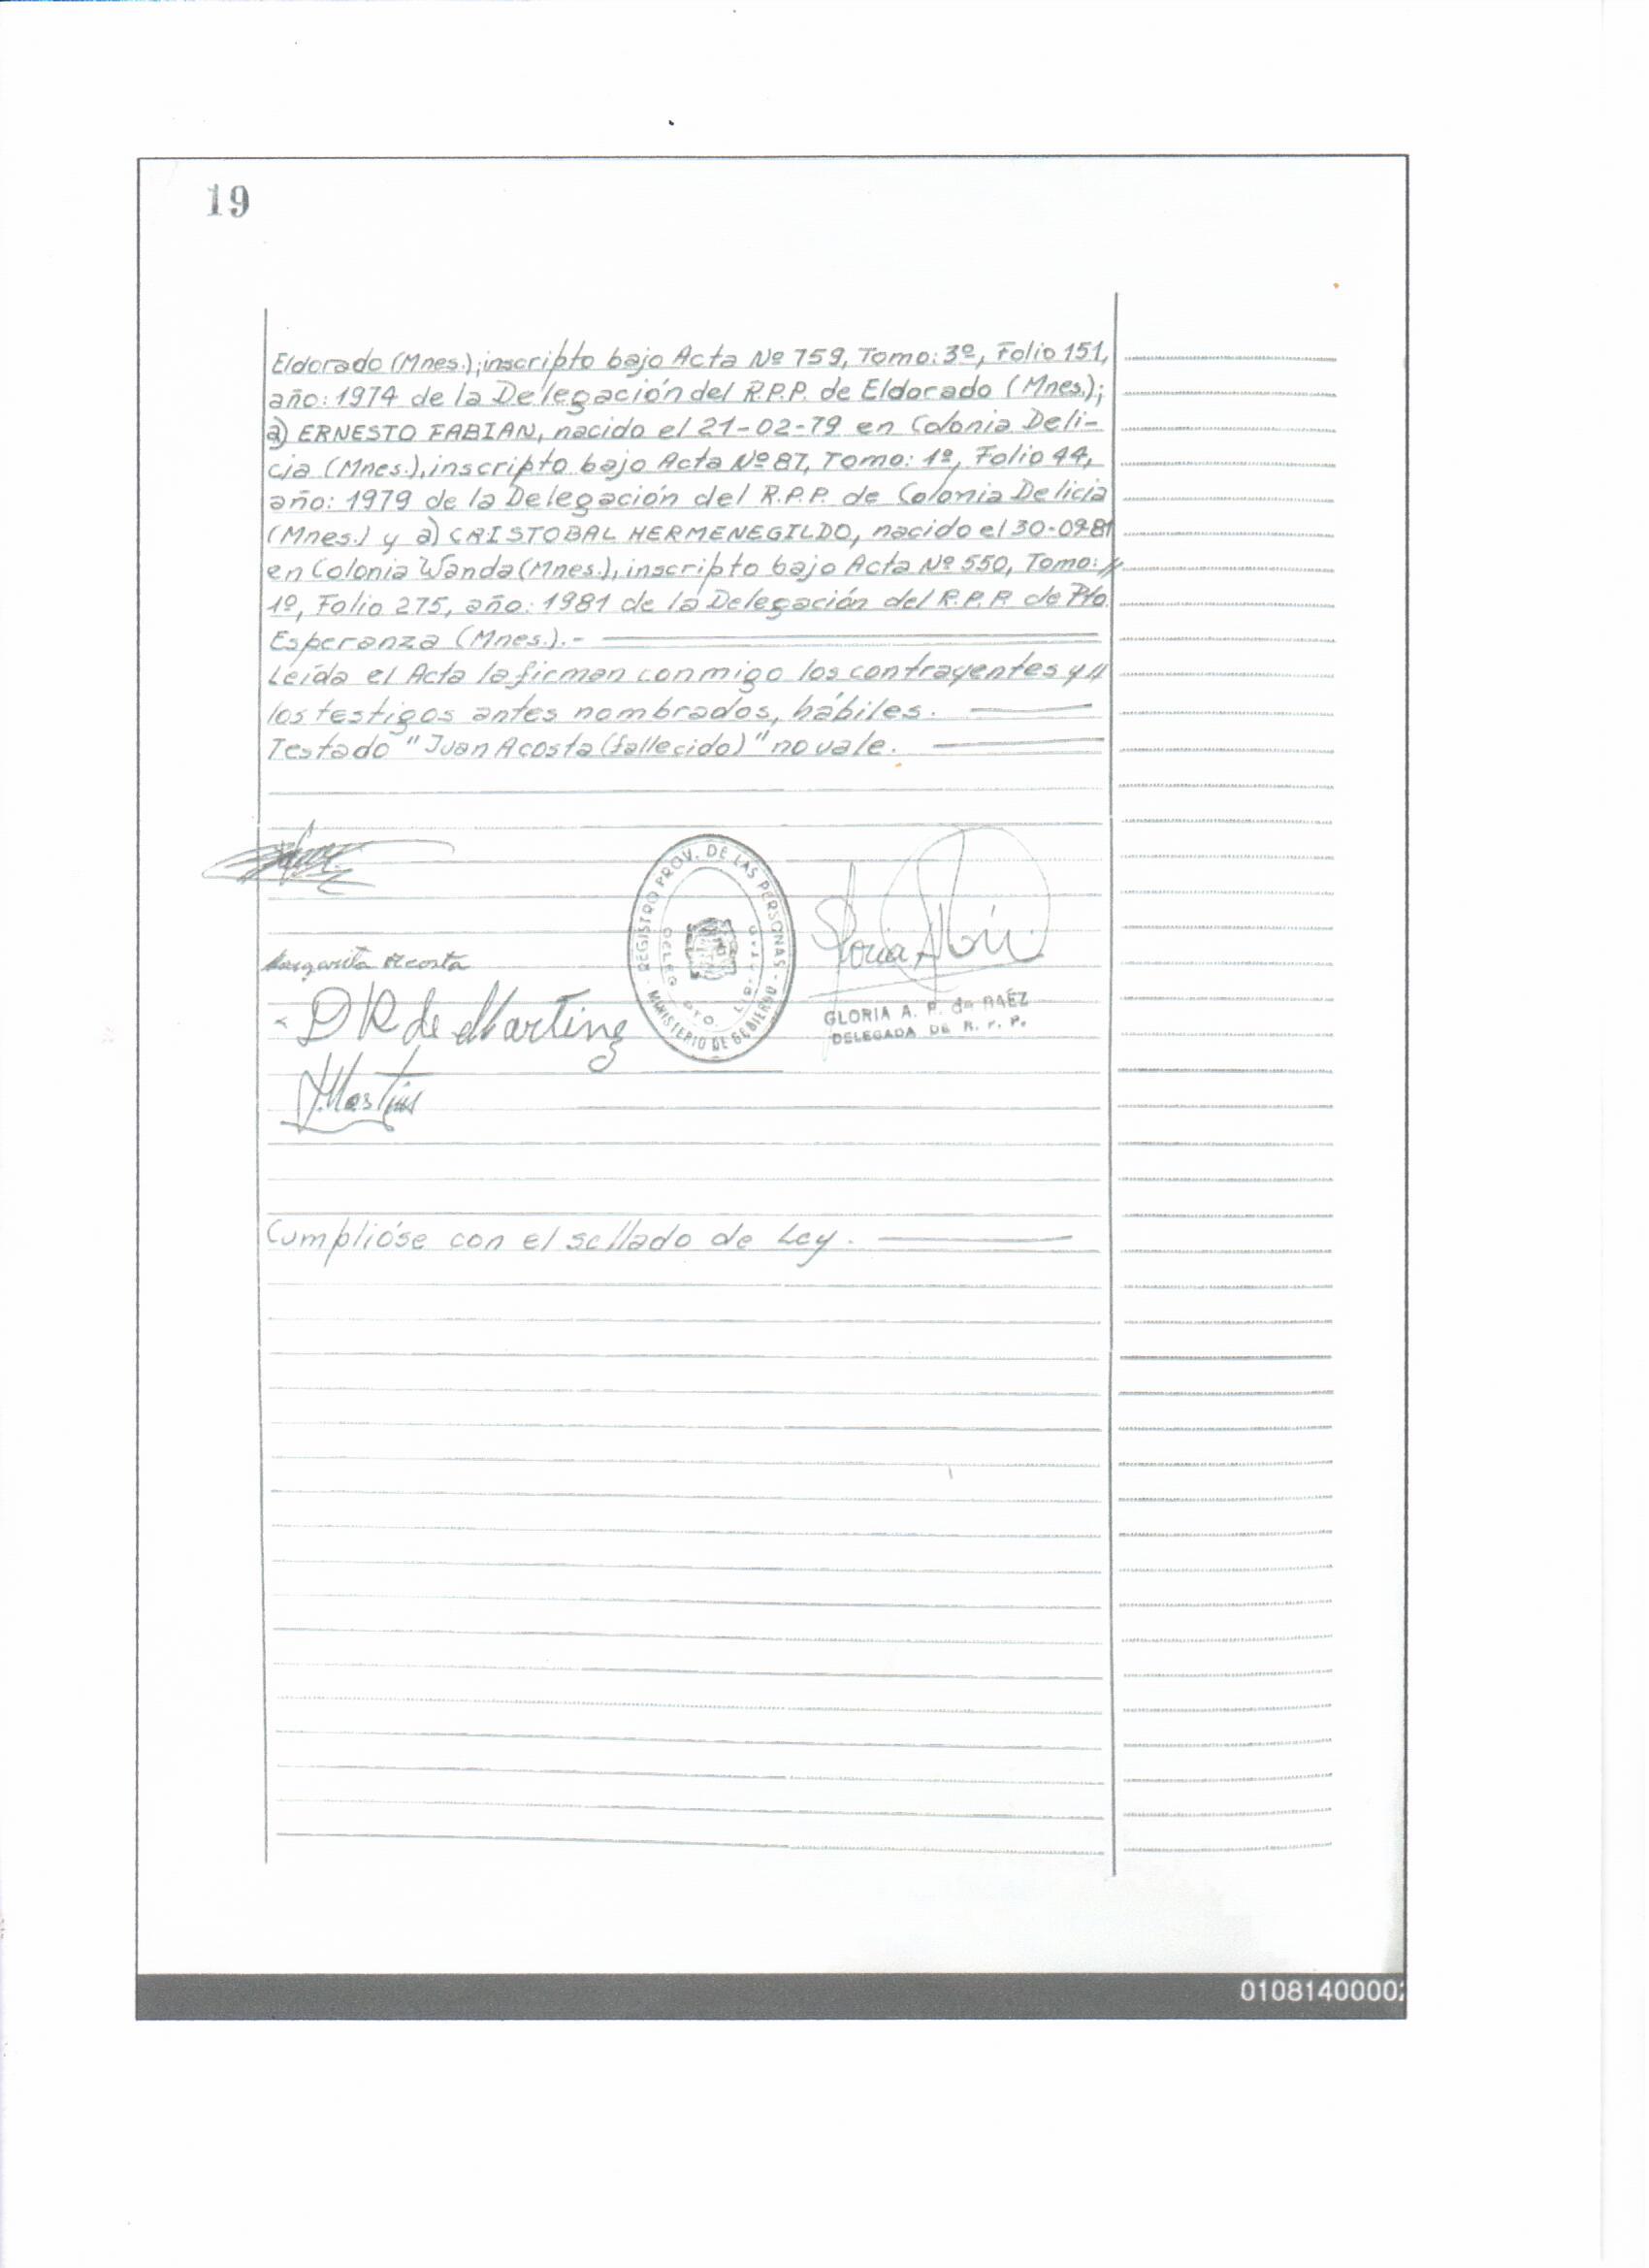 19
Eldorado (Mnes.); inscripto bajo Acta Nº 759, Tomo: 3º, Folio 151,
año: 1974 de la Delegación del R.P.P. de Eldorado (Mnes.);
a) ERNESTO FABIAN, nacido el 21-02-79 en Colonia Deli-
cia (Mnes.), inscripto bajo Acta Nº 87, Tomo: 1º, Folio 44,
año: 1979 de la Delegación del R.P.P. de Colonia Delicia
(Mnes.) y a) CRISTOBAL HERMENEGILDO, nacido el
en Colonia Wanda (Mnes.), inscripto bajo Acta Nº 550, Tomo: //
1º, Folio 275, año: 1981 de la Delegación del R.P.P. de Pto.
Esperanza (Mnes.).-
Leída el Acta la firman conmigo los contrayentes y //
los testigos antes nombrados, hábiles.
Testado "Juan Acosta (fallecido)" no vale.
REGISTRO PROV. DE LAS PERSONAS - MINISTERIO DE GOBIERNO -
DELEG. PTO.
Margarita Acosta
D R de Martinez
GLORIA A. P. de BAÉZ
DELEGADA DE R. P. P.
Cumplióse con el sellado de Ley.
0108140000